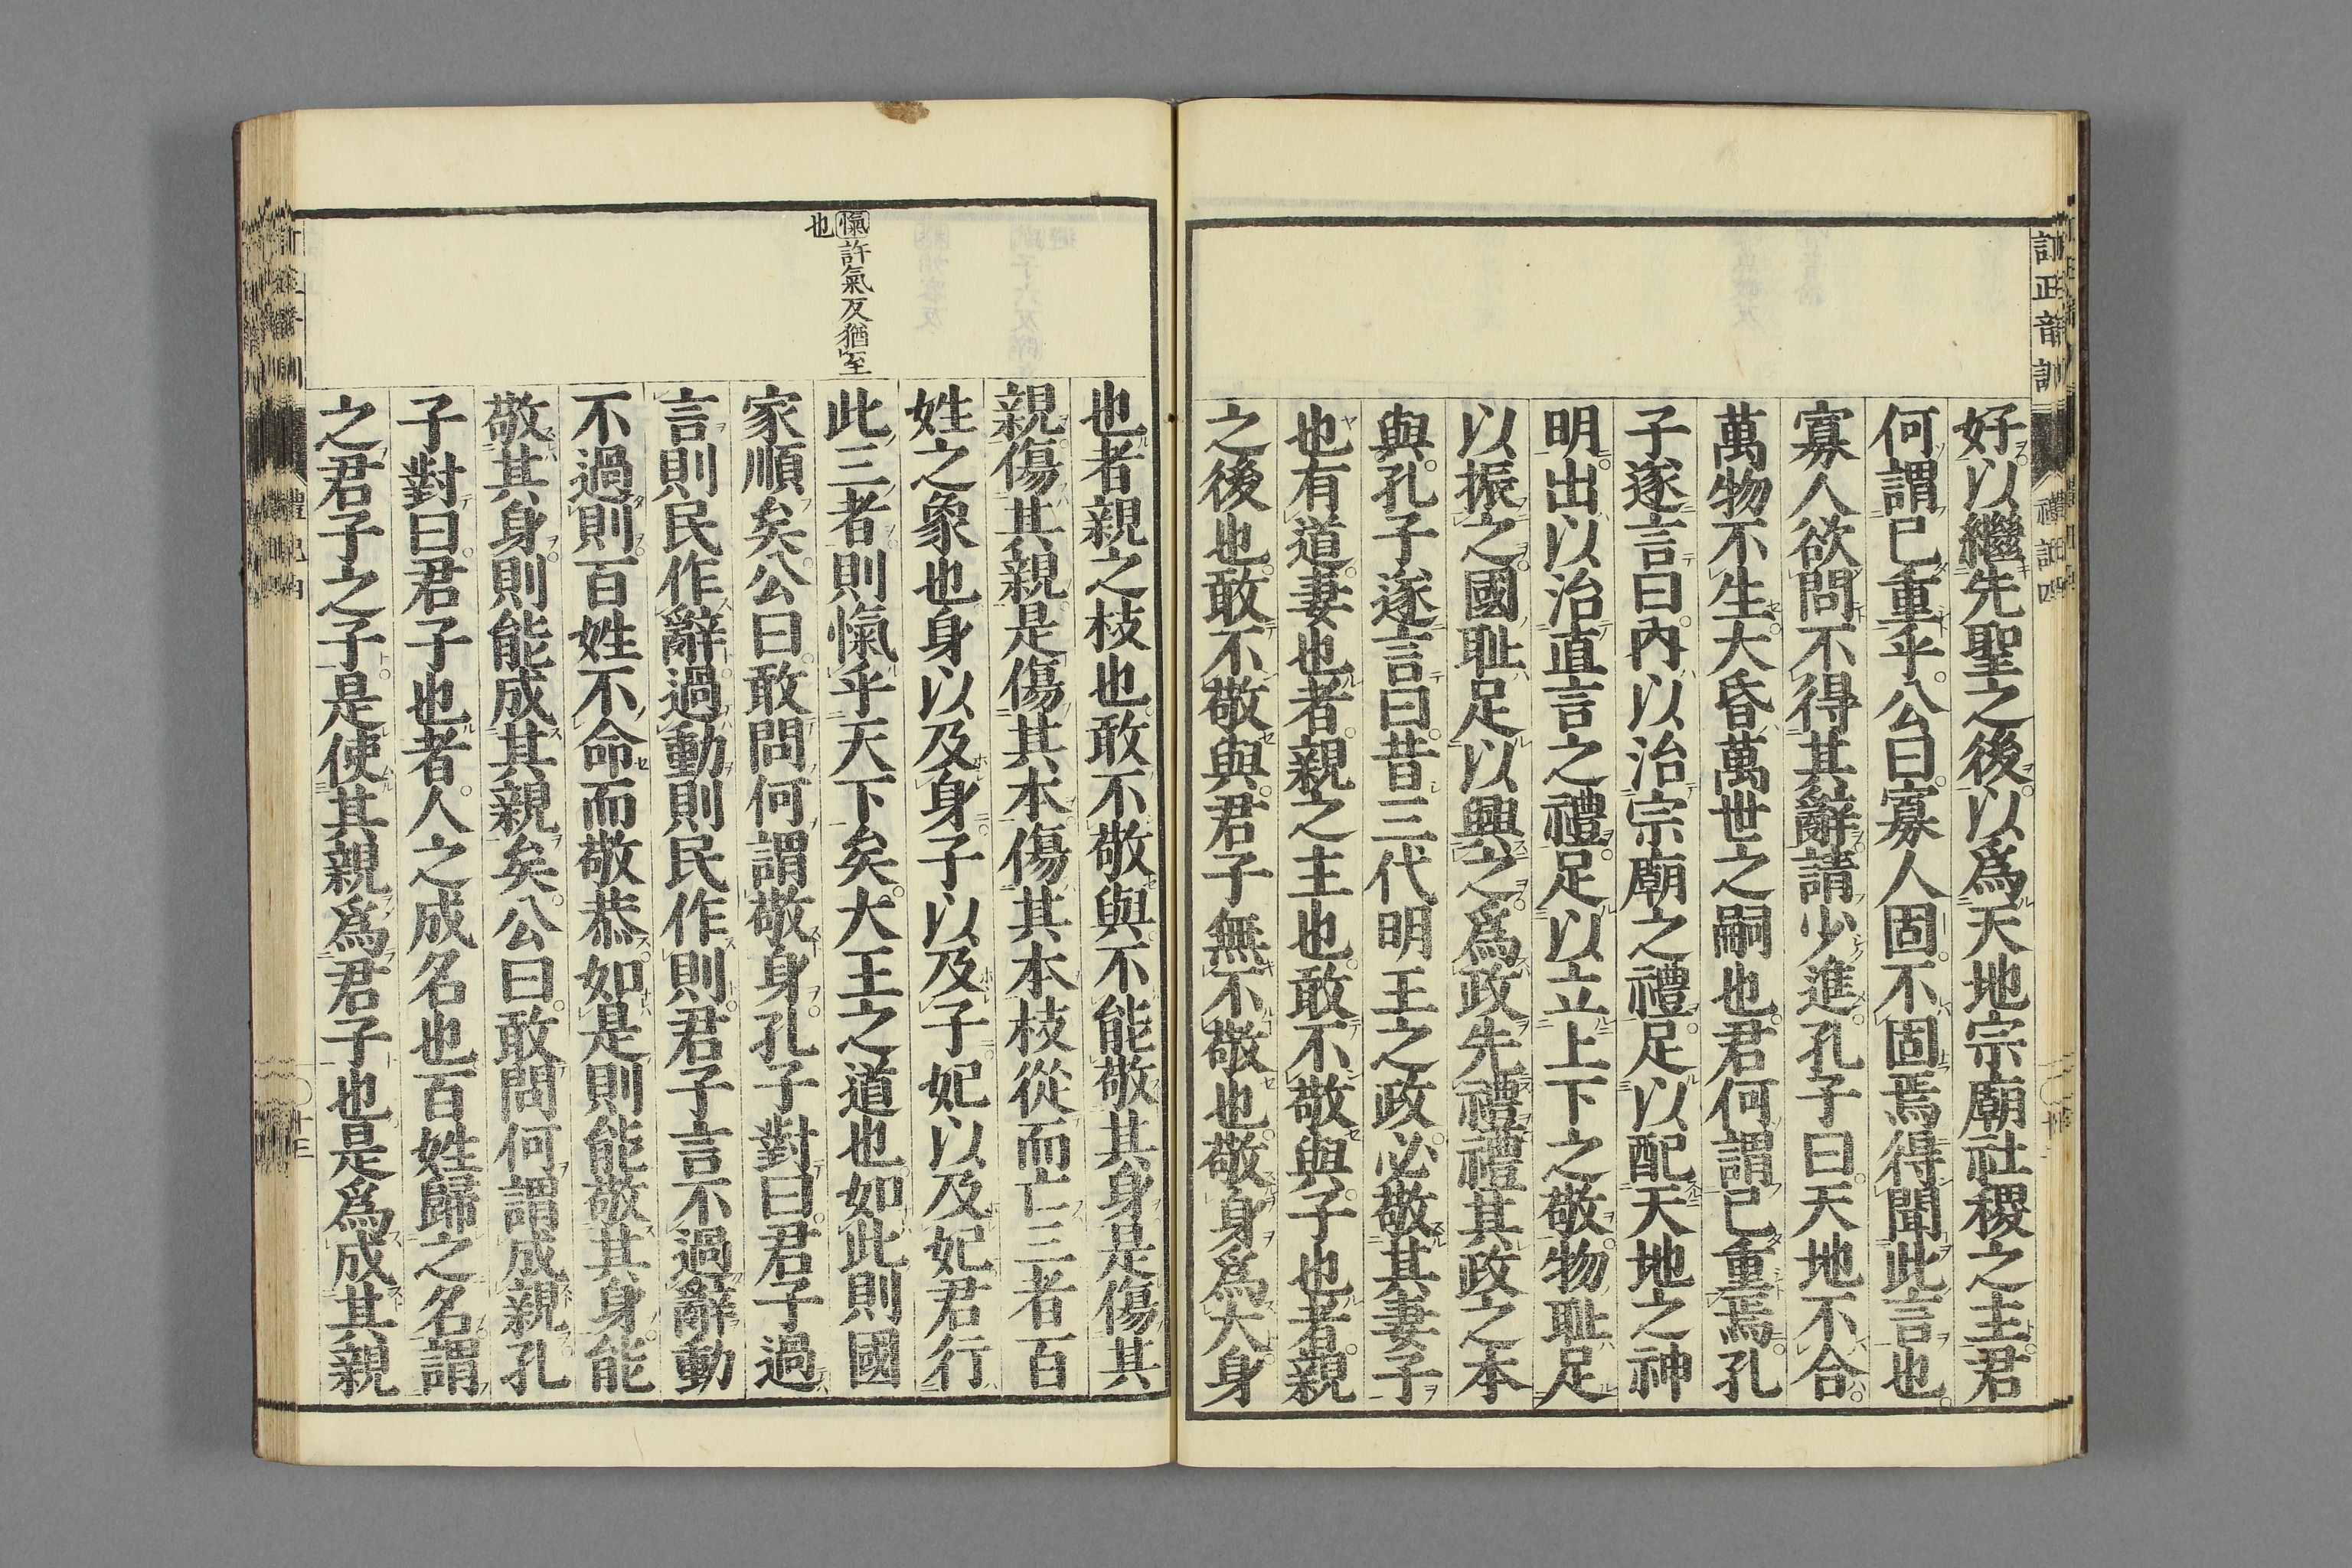 訂正音訓
禮記四
好以繼先聖之後以爲天地宗廟社稷之主君
何謂已重乎公曰寡人固不固焉得聞此言也
寡人欲問不得其辭請少進孔子曰天地不合
萬物不生大昏萬世之嗣也君何謂已重焉孔
子遂言曰內以治宗廟之禮足以配天地之神
明出以治直言之禮足以立上下之敬物耻足
以振之國耻足以興之爲政先禮禮其政之本
與孔子遂言曰昔三代明王之政必敬其妻子
也有道妻也者親之主也敢不敬與子也者親
之後也敢不敬與君子無不敬也敬身爲大身
也者親之枝也敢不敬與不能敬其身是傷其
親傷其親是傷其本傷其本枝從而亡三者百
姓之象也身以及身子以及子妃以及妃君行
愾許氣反猶至
也
此三者則愾乎天下矣大王之道也如此則國
家順矣公曰敢問何謂敬身孔子對曰君子過
言則民作辭過動則民作則君子言不過辭動
不過則百姓不命而敬恭如是則能敬其身能
敬其身則能成其親矣公曰敢問何謂成親孔
子對曰君子也者人之成名也百姓歸之名謂
之君子之子是使其親爲君子也是爲成其親
十三